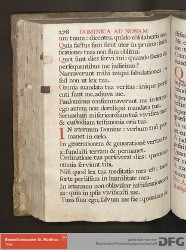 278 DOMINICA AD NONAM
um tuum: dicentes, quando consolaberis me.
Quia factus sum sicut uter in pruina: justi
ficationes tuas non sum oblitus.
Quot sunt dies servi tui: quando facies de
persequentibus me judicium?
Narraverunt mihi iniqui fabulationes:
sed non ut lex tua.
Omnia mandata tua veritas: iniqui perse
cuti sunt me, adjuva me.
Paulominus consummaverunt me in terra:
ego autem non dereliqui mandata tua.
Secundum misericordiam tuam vivifica me:
& custodiam testimonia oris tui.
IN æternum Domine: verbum tuum per
manet in cælo.
In generationem & generationem veritas tu
a: fundasti terram & permanet.
Ordinatione tua perseverat dies: quoniam
omnia serviunt tibi.
Nisi quod lex tua meditatio mea est: tunc
forte periissem in humilitate mea.
In æternum non obliviscar justificationes tu
as: quia in ipsis vivificasti me.
Tuus sum ego, salvum me fac: quoniam
Benediktinerabtei St. Matthias,
DFG